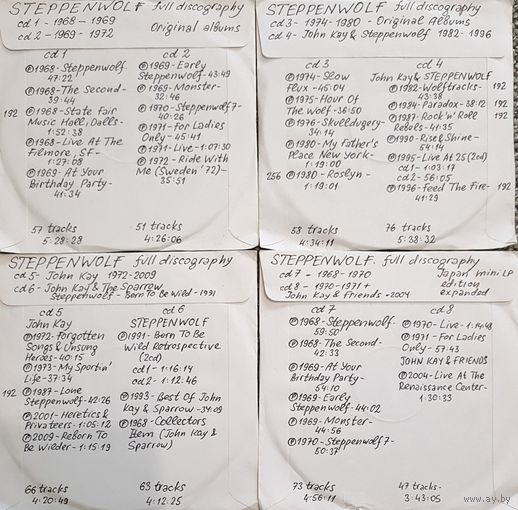 STEPPENWOLF full discography
cd 1 - 1968 - 1969
cd 2 - 1969 - 1972
Original albums
cd 1
℗1968-Steppenwolf-
47:22
℗1968-The Second-
39:44
192 ℗1968-State Fair
Music Hall, Dalls-
1:52:38
℗1968-Live At The
Filmore, SF-
1:27:08
℗1969-At Your
Birthday Party-
41:34
57 tracks
5:28:28
cd 2
℗1969-Early
Steppenwolf-43:49
℗1969-Monster-
32:46
℗1970-Steppenwolf7-
40:26
℗1971-For Ladies
Only-45:41
℗1971-Live-1:07:30
℗1972-Ride With
Me (Sweden '72)-
35:51
51 tracks
4:26:06
STEPPENWOLF full discography
cd 3 - 1974-1980 - Original Albums
cd 4 - John Kay & Steppenwolf 1982-1996
cd 3
℗1974-Slow
Flux-45:04
℗1975-Hour Of
The Wolf-36:50
℗1976-Skullduggery-
34:14
℗1980-My Father's
Place New York-
1:19:00
256 ℗1980-Roslyn-
1:19:01
58 tracks
4:34:11
cd 4
John Kay & STEPPENWOLF
℗1982-Wolftracks- 192
43:38
℗1984-Paradox-38:12 192
℗1987-Rock'n'Roll 192
Rebels-41:35
℗1990-Rise&Shine-
54:14
℗1995-Live At 25(2cd)
cd1-1:03:17
cd2-56:05
℗1996-Feed The Fire- 192
41:29
76 tracks
5:38:32
STEPPENWOLF full discography
cd 5 - John Kay 1972-2009
cd 6 - John Kay & The Sparrow
Steppenwolf-Born To Be Wild-1991
cd 5
John Kay
℗1972-Forgotten
Songs & Unsung
Heroes-40:15
℗1973-My Sportin'
Life-37:34
192 ℗1987-Lone
Steppenwolf-42:26
℗2001-Heretics &
Privateers-1:05:12
℗2009-Reborn To
Be Wilder-1:15:19
66 tracks
4:20:49
cd 6
STEPPENWOLF
℗1991-Born To Be
Wild Retrospective
(2cd)
cd1-1:16:14
cd2-1:12:46
℗1993-Best Of John
Kay & Sparrow-34:09
℗1968-Collectors
Item (John Kay &
Sparrow)
63 tracks
4:12:25
STEPPENWOLF full discography
cd 7 - 1968-1970
cd 8 - 1970-1971+
John Kay & Friends-2004
Japan mini LP
edition
expanded
cd 7
℗1968-Steppenwolf-
59:50
℗1968-The Second-
42:33
℗1969-At Your
Birthday Party-
54:10
℗1969-Early
Steppenwolf-44:02
℗1969-Monster-
44:56
℗1970-Steppenwolf7-
50:37
73 tracks
4:56:11
cd 8
℗1970-Live-1:14:48
℗1971-For Ladies
Only-57:43
JOHN KAY & FRIENDS
℗2004-Live At The
Renaissance Center-
1:30:33
47 tracks-
3:43:05
www.ay.by